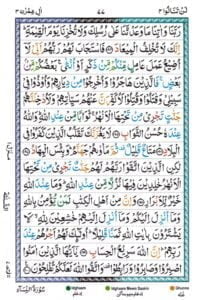 لَنْ تَنَالُوا ٤ ٧٧ اٰلِ عِمْرٰن ٣
رَبَّنَا وَاٰتِنَا مَا وَعَدْتَّنَا عَلٰى رُسُلِكَ وَلَا تُخْزِنَا يَوْمَ الْقِيٰمَةِ
اِنَّكَ لَا تُخْلِفُ الْمِيْعَادَ فَاسْتَجَابَ لَهُمْ رَبُّهُمْ اَنِّيْ لَآ
اُضِيْعُ عَمَلَ عَامِلٍ مِّنْكُمْ مِّنْ ذَكَرٍ اَوْ اُنْثٰى بَعْضُكُمْ مِّنْ
بَعْضٍ فَالَّذِيْنَ هَاجَرُوْا وَاُخْرِجُوْا مِنْ دِيَارِهِمْ وَاُوْذُوْا
فِيْ سَبِيْلِيْ وَقٰتَلُوْا وَقُتِلُوْا لَاُكَفِّرَنَّ عَنْهُمْ سَيِّاٰتِهِمْ
وَلَاُدْخِلَنَّهُمْ جَنّٰتٍ تَجْرِيْ مِنْ تَحْتِهَا الْاَنْهٰرُ ثَوَابًا مِّنْ عِنْدِ اللّٰهِ وَاللّٰهُ
عِنْدَهٗ حُسْنُ الثَّوَابِ لَا يَغُرَّنَّكَ تَقَلُّبُ الَّذِيْنَ كَفَرُوْا فِي الْبِلَادِ
مَتَاعٌ قَلِيْلٌ ثُمَّ مَاْوٰىهُمْ جَهَنَّمُ وَبِئْسَ الْمِهَادُ لٰكِنِ
الَّذِيْنَ اتَّقَوْا رَبَّهُمْ لَهُمْ جَنّٰتٌ تَجْرِيْ مِنْ تَحْتِهَا الْاَنْهٰرُ
خٰلِدِيْنَ فِيْهَا نُزُلًا مِّنْ عِنْدِ اللّٰهِ وَمَا عِنْدَ اللّٰهِ
خَيْرٌ لِّلْاَبْرَارِ وَاِنَّ مِنْ اَهْلِ الْكِتٰبِ لَمَنْ يُّؤْمِنُ بِاللّٰهِ
وَمَآ اُنْزِلَ اِلَيْكُمْ وَمَآ اُنْزِلَ اِلَيْهِمْ خٰشِعِيْنَ لِلّٰهِ
لَا يَشْتَرُوْنَ بِاٰيٰتِ اللّٰهِ ثَمَنًا قَلِيْلًا اُولٰٓئِكَ لَهُمْ اَجْرُهُمْ عِنْدَ
رَبِّهِمْ اِنَّ اللّٰهَ سَرِيْعُ الْحِسَابِ يٰٓاَيُّهَا الَّذِيْنَ اٰمَنُوا
اصْبِرُوْا وَصَابِرُوْا وَرَابِطُوْا وَاتَّقُوا اللّٰهَ لَعَلَّكُمْ تُفْلِحُوْنَ